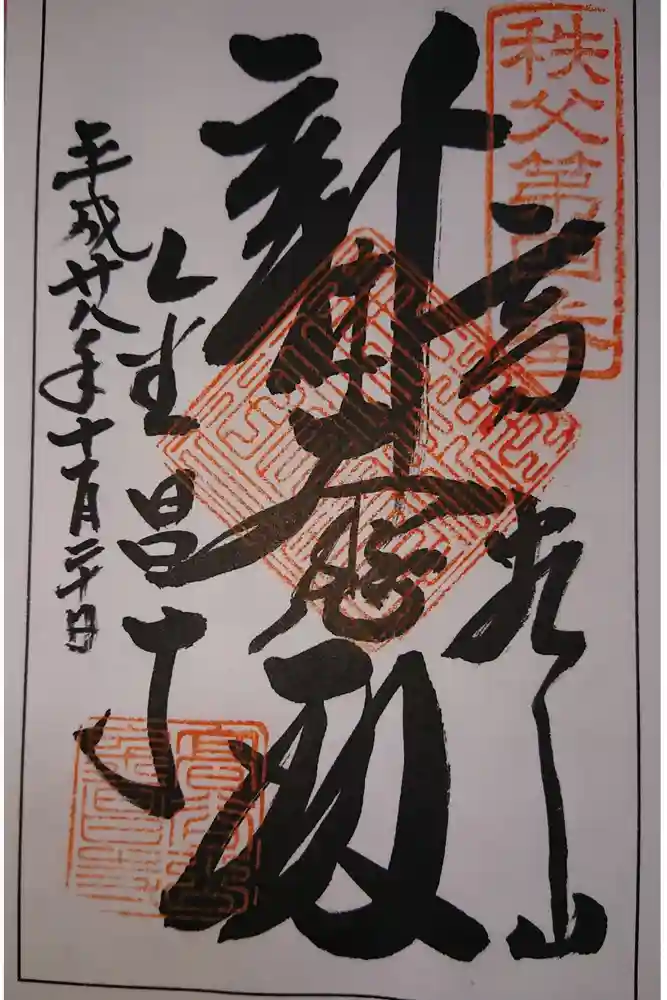 秩父第四番
高谷山
新木大悲殿
金昌寺
平成廿八年十一月二十日